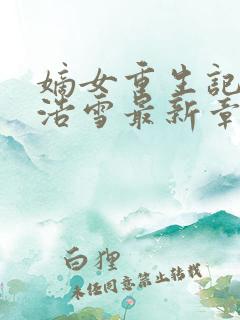 嫡女重生记
浩雪最新章
白狸
未经同意禁止转载